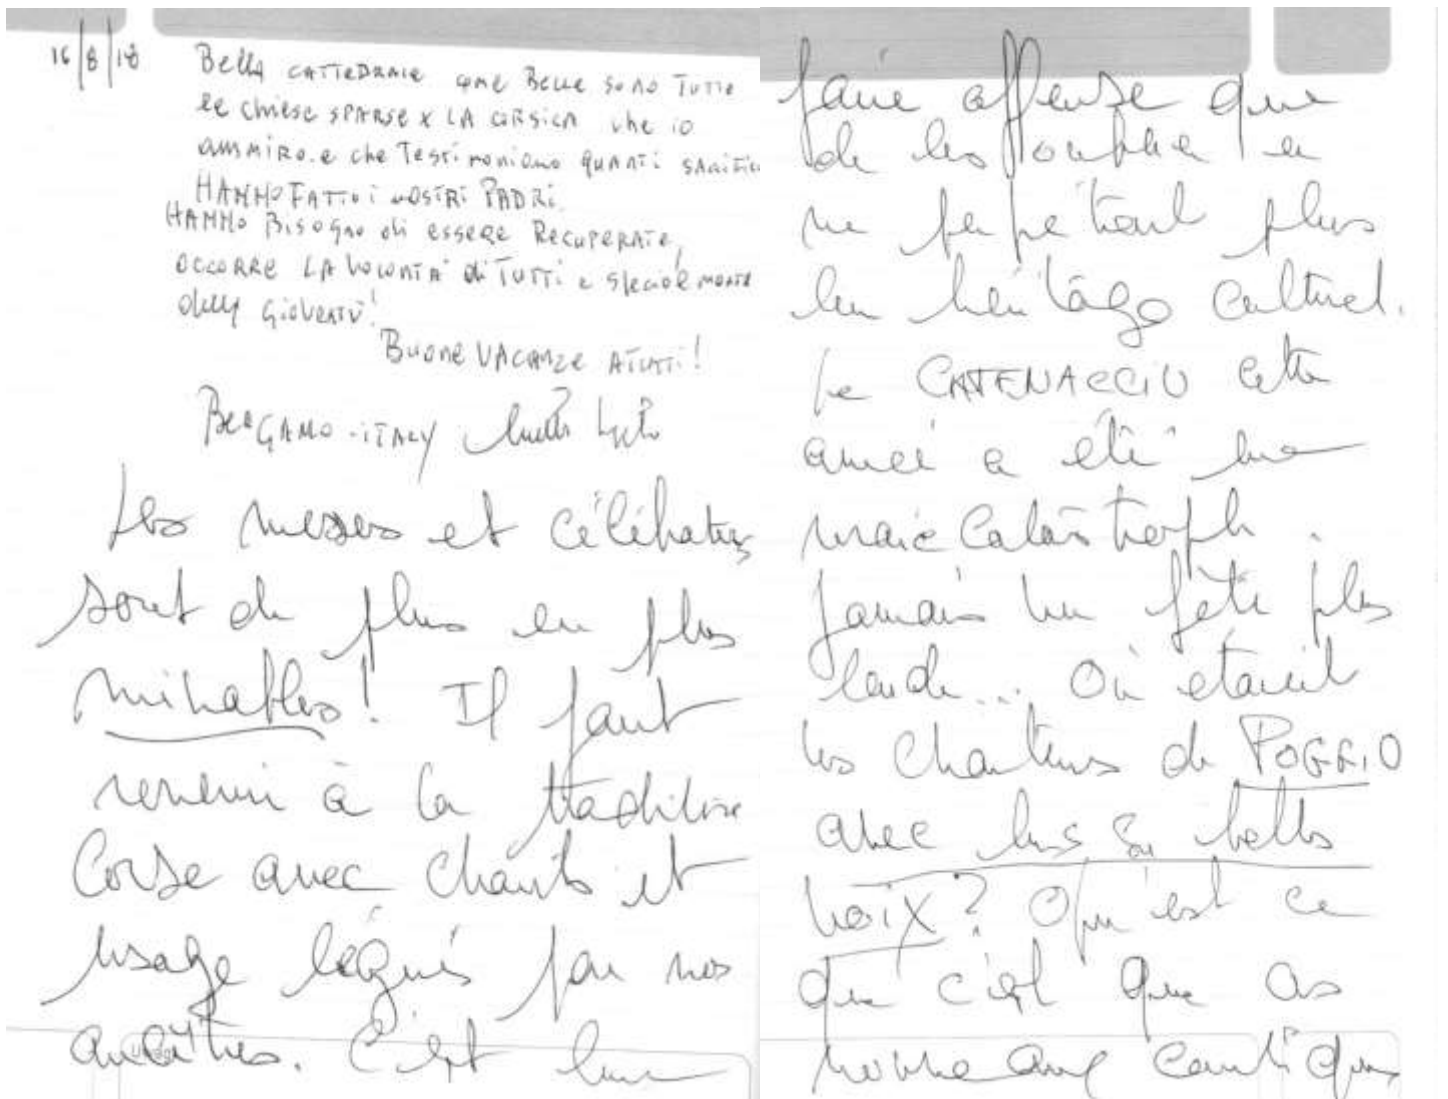 16/8/18
Bella cattedrale come Belle sono TUTTE
le chiese sparse x LA CORSICA che io
ammiro. e che Testimoniano quanti sacrifici
HANNO FATTO i nostri PADRI.
HANNO Bisogno di essere Recuperate,
occorre LA volontà di TUTTi e specialmente
della Gioventù!
Buone VACANZE A TUTTi!
BERGAMO - ITALY
Les messes et célébrations
sont de plus en plus
minables! Il faut
revenir à la tradition
Corse avec chants et
usage légués par nos
ancêtres. C'est leur
faire offense que
de les oublier et
ne perpétrant plus
leur héritage culturel.
Le CATENACCIU cette
année a été une
vraie Catastroph.
Jamais vu fête plus
laide... Où étaient
les chanteurs de POGGIO
avec leurs si belles
voix? Qu'est ce
que c'est que ces
nouveaux cantiques